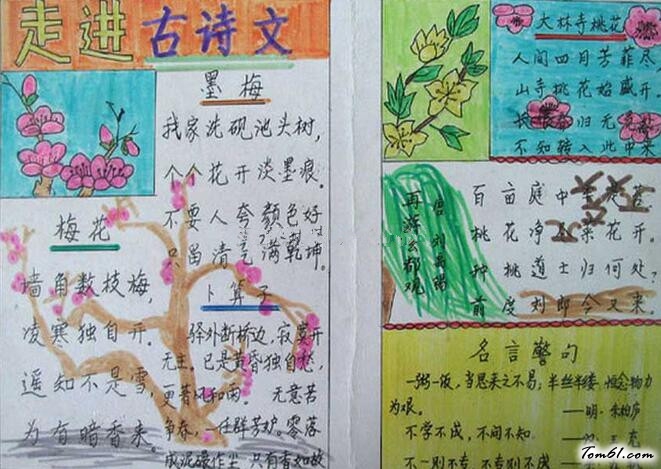 走进古诗文
墨梅
我家洗砚池头树，
个个花开淡墨痕。
不要人夸颜色好
只留清气满乾坤。
梅花
墙角数枝梅，
凌寒独自开。
遥知不是雪，
为有暗香来。
卜算子
驿外断桥边，寂寞开
无主。已是黄昏独自愁，
更著风和雨。无意苦
争春，一任群芳妒。零落
成泥碾作尘 只有香如故
大林寺桃花
人间四月芳菲尽，
山寺桃花始盛开。
长恨春归无觅处
不知转入此中来
再游玄都观
唐 刘禹锡
百亩庭中半是苔，
桃花净尽菜花开。
种桃道士归何处，
前度刘郎今又来。
名言警句
一粥一饭，当思来之不易；半丝半缕，恒念物力
为艰。
——明·朱柏庐
不学不成，不问不知。
不一则不专，不专则不成
Tom61.com